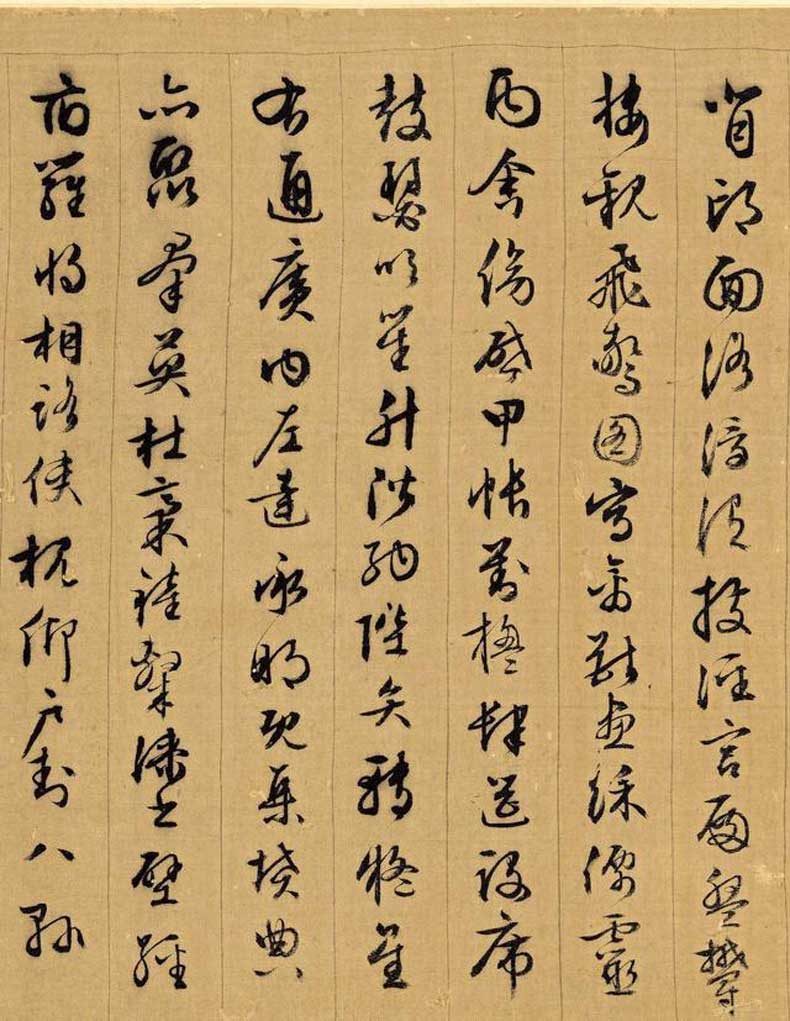 背邙面洛浮渭據涇宮殿盤鬱
樓觀飛驚圖寫禽獸畫綵僊靈
丙舍傍啟甲帳對楹肆筵設席
鼓瑟吹笙升階納陛弁轉疑星
右通廣內左達承明既集墳典
亦聚羣英杜稾鍾隸漆書壁經
府羅將相路俠槐卿戶封八縣